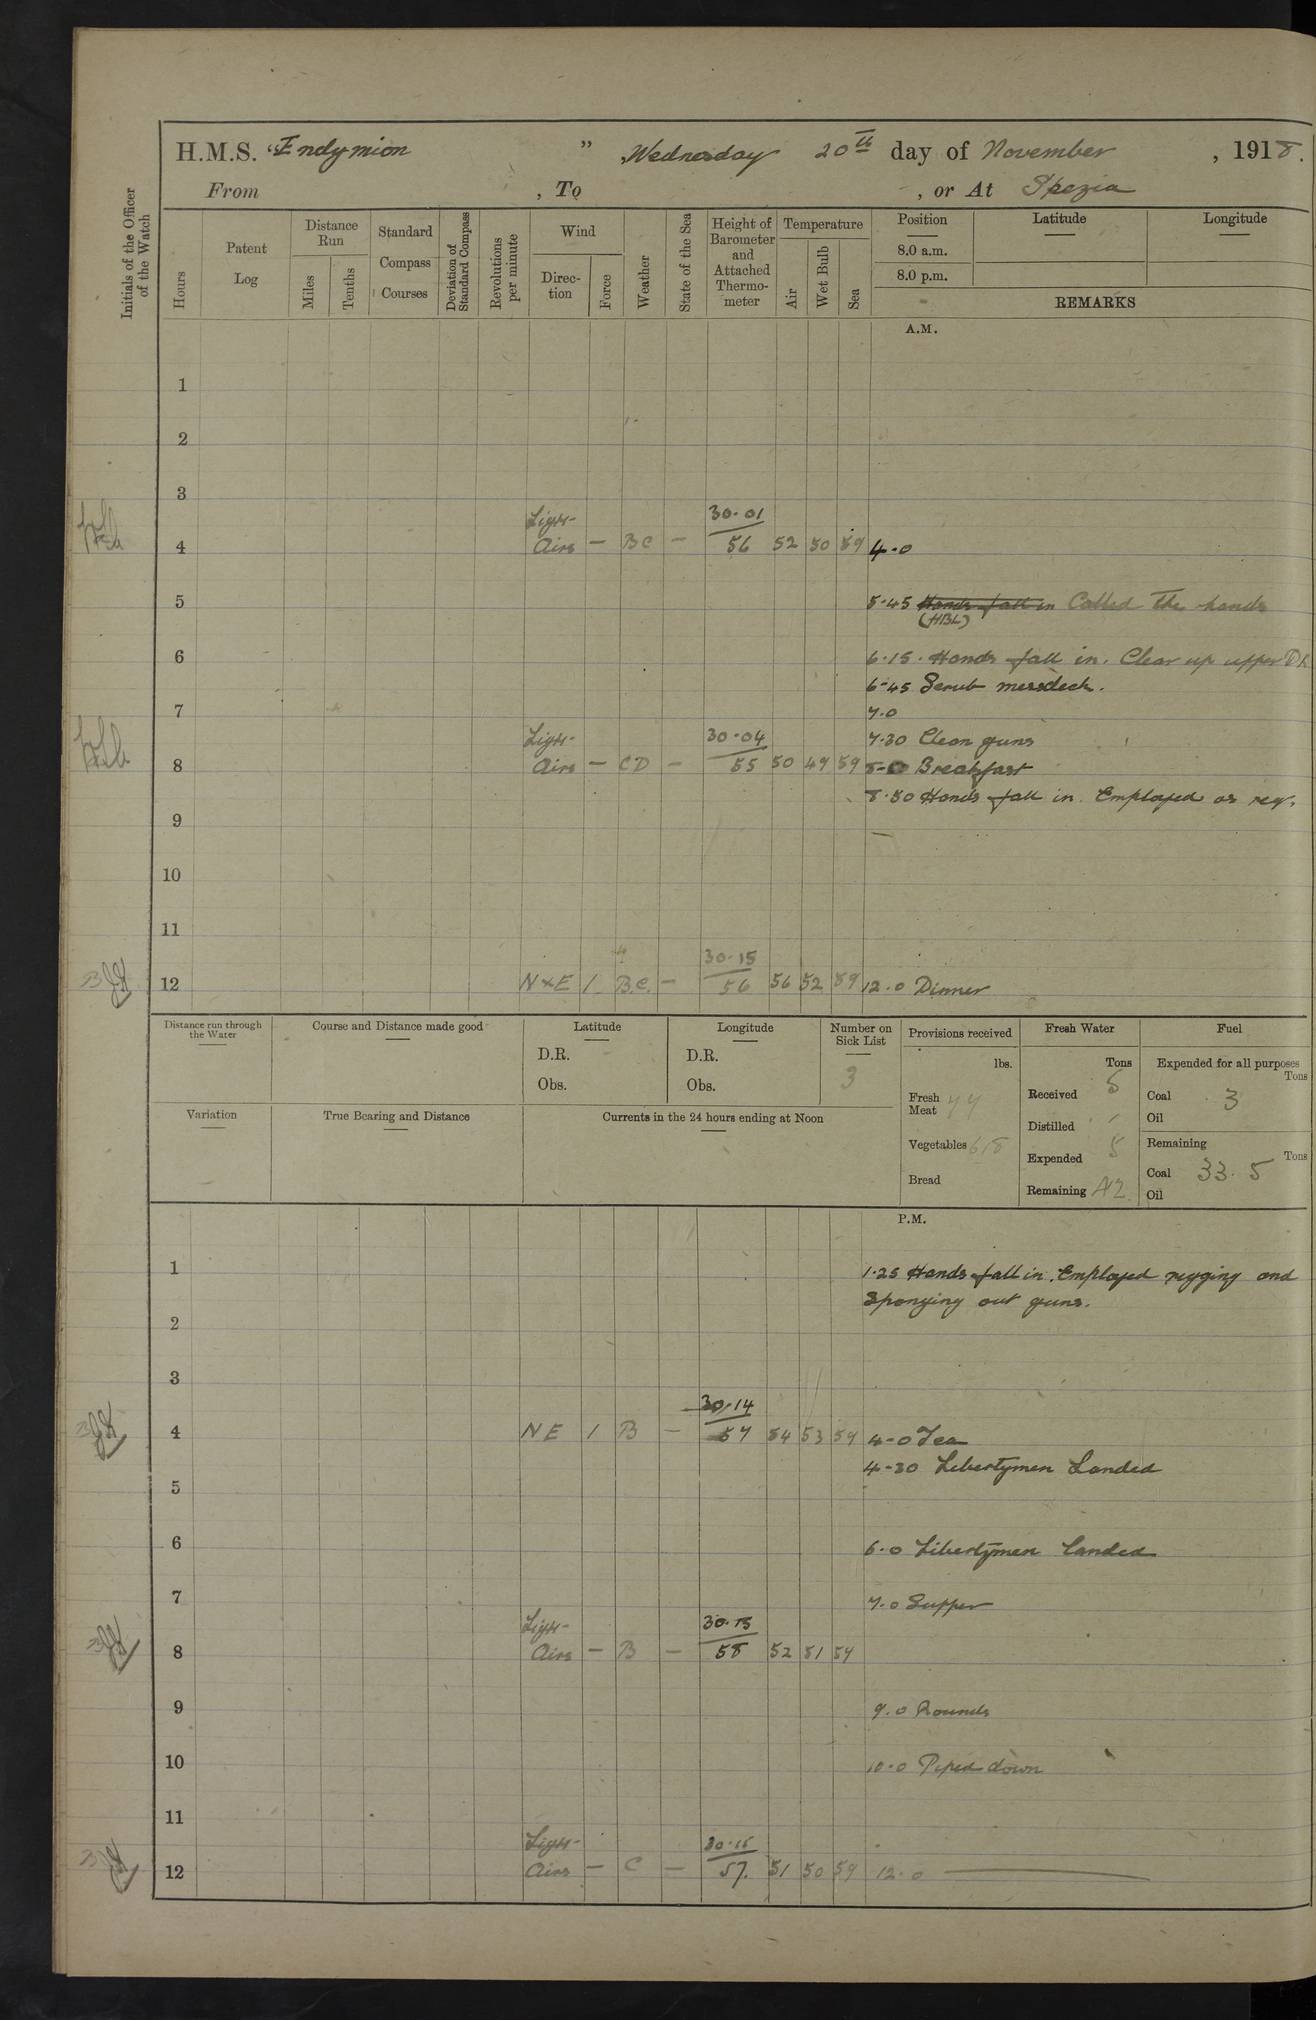 H.M.S. "Endymion ", Wednesday 20th day of November, 1918.
From , To , or At Spezia
Initials of the Officer of the Watch
Hours
Patent Log
Distance Run
Miles
Tenths
Standard Compass Courses
Deviation of Standard Compass
Revolutions per minute
Wind
Direction
Force
Weather
State of the Sea
Height of Barometer and Attached Thermometer
Temperature
Air
Wet Bulb
Sea
Position Latitude Longitude
8.0 a.m.
8.0 p.m.
REMARKS
A.M.
1
2
3
Light 30.01
4 Airs — BC — 56 52 50 59 4.0
5 5.45 Hands fall in Called the hands
(HBL)
6 6.15. Hands fall in. Clear up upper Dk
6.45 Scrub messdeck.
7 7.0
Light 30.04 7.30 Clean guns
8 Airs — CD — 55 50 49 59 8-0 Breakfast
8.50 Hands fall in. Employed as req.
9
10
11
30.15
12 N×E 1 B.C. — 56 56 52 59 12.0 Dinner
Distance run through the Water
Course and Distance made good
Latitude
D.R.
Obs.
Longitude
D.R.
Obs.
Number on Sick List
3
Variation
True Bearing and Distance
Currents in the 24 hours ending at Noon
Provisions received
lbs.
Fresh Meat 77
Vegetables 618
Bread
Fresh Water
Tons
Received 5
Distilled
Expended 5
Remaining
Fuel
Expended for all purposes
Tons
Coal 3
Oil
Remaining
Tons
Coal 33.5
Oil
P.M.
1 1.25 Hands fall in. Employed rigging and
Sponging out guns.
2
3
30.14
4 NE 1 B — 57 54 53 59 4-0 Tea
4-30 Libertymen Landed
5
6 6.0 Libertymen landed
7 7.0 Supper
Light 30.15
8 Airs — B — 58 52 51 59
9 9.0 Rounds
10 10.0 Piped down
11
Light 30.15
12 Airs — C — 57. 51 50 59 12.0